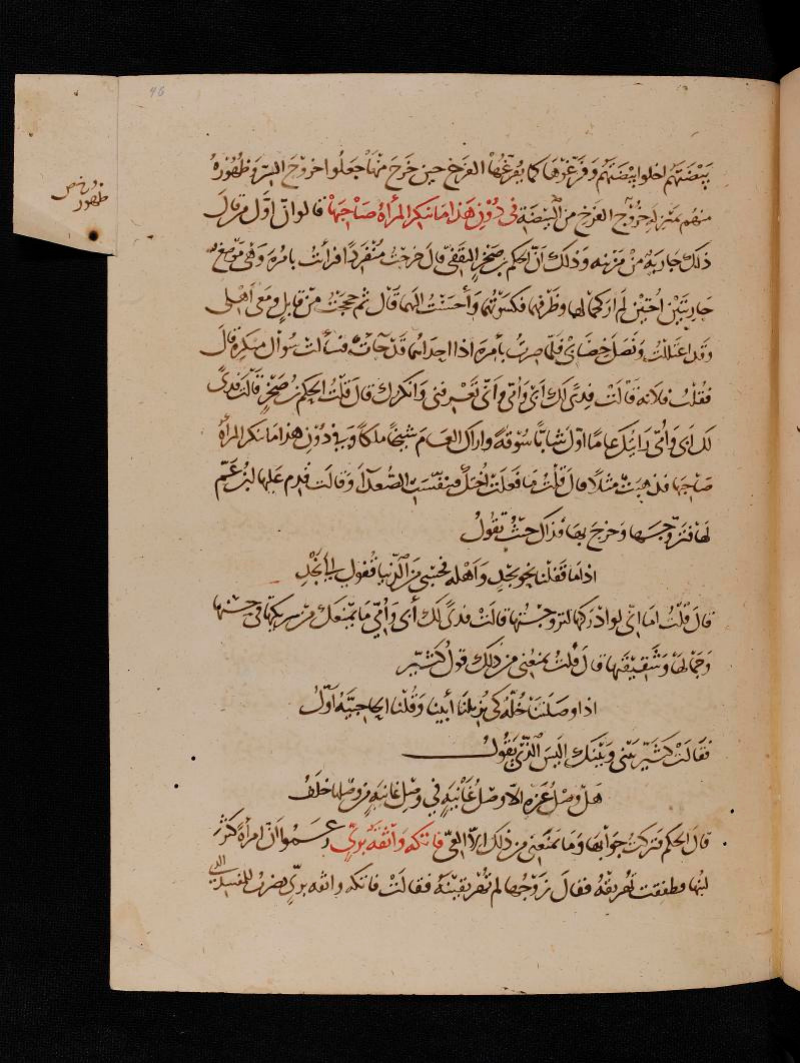 46
بيضتهم اخلوا بيضتهم وفرغوها كما يفرغها الفرخ حين خرج منها جعلوا خروج السر وظهوره
منهم بمنزلة خروج الفرخ من البيضة في دون هذا ما تنكر المرأة صاحبها قالوا ان اول من قال
ذلك جارية من مزينه وذلك ان الحكم بن صخر الثقفي قال خرجت منفردا فرأيت بامرة وهي موضع
جاريتين اختين لم ار كجمالهما وظرفهما فكسوتهما وأحسنت اليهما قال ثم حججت من قابل ومعى اهلى
وقد اعتللت ونصل خضابى فلما صرت بامرة اذا احداهما قد جاءت فسألت سؤال منكرة قال
فقلت فلانه قالت فدى لك ابى وأمى وأنى تعرفنى وانكرك قال قلت الحكم بن صخر قالت فدى
لك ابى وأمى رايتك عاما اول شابا سوقة واراك العام شيخا ملكا وفي دون هذا ما تنكر المرأة
صاحبها فذهبت مثلا قال قلت ما فعلت اختك فتنفست الصعدآء وقالت قدم عليها ابن عم
لها فتزوجها وخرج بها فذاك حيث تقول
اذا ما قفلنا نحو نجد واهله فحسبى من الدنيا قفول الى نجد
قال قلت اما انى لو ادركتها لتزوجتها قالت فدى لك أبى وأمى ما يمنعك من شريكتها في حسنها
وجمالها وشقيقتها قال قلت يمنعنى من ذلك قول كثير
اذا وصلتنا خلة كى تزيلنا أبينا وقلنا الحاجبية أول
فقالت كثير بينى وبينك اليس الذى يقول
هل وصل عزة الا وصل غانية في وصل غانية من وصلها خلف
قال الحكم فتركت جوابها وما يمنعنى من ذلك الا العى فاتكة واثقة برى زعموا ان امرأة كثر
لبنها وطفقت تهريقه فقال زوجها لم تهريقينه فقالت فاتكة واثقة برى يضرب للمفسد الذى
ظهور